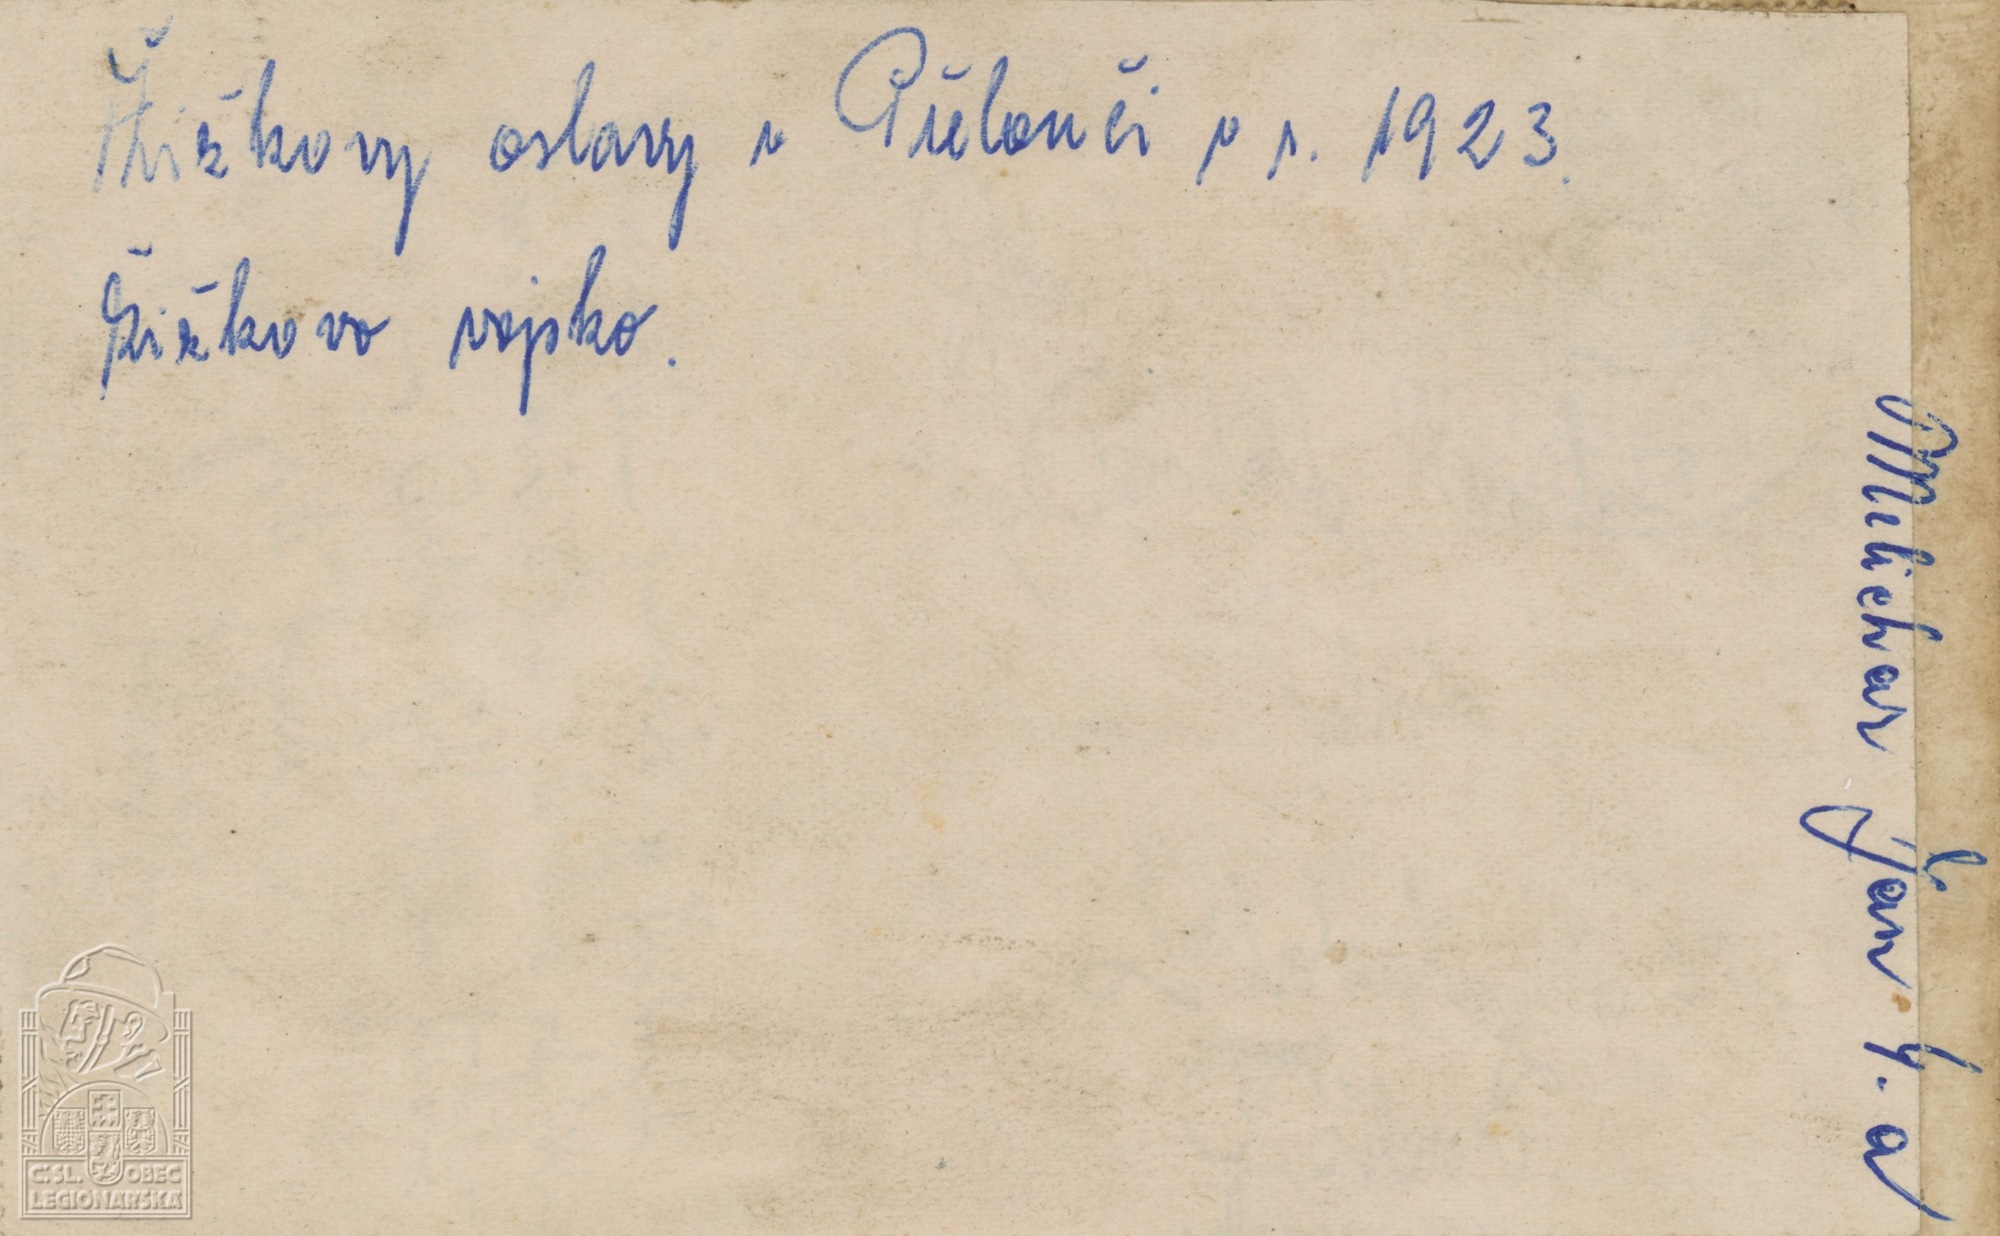 Žižkovy oslavy v Přelouči v r. 1923.
Žižkovo vojsko.
Melichar Jan 4. a
Č.SL. OBEC
LEGIONÁŘSKÁ